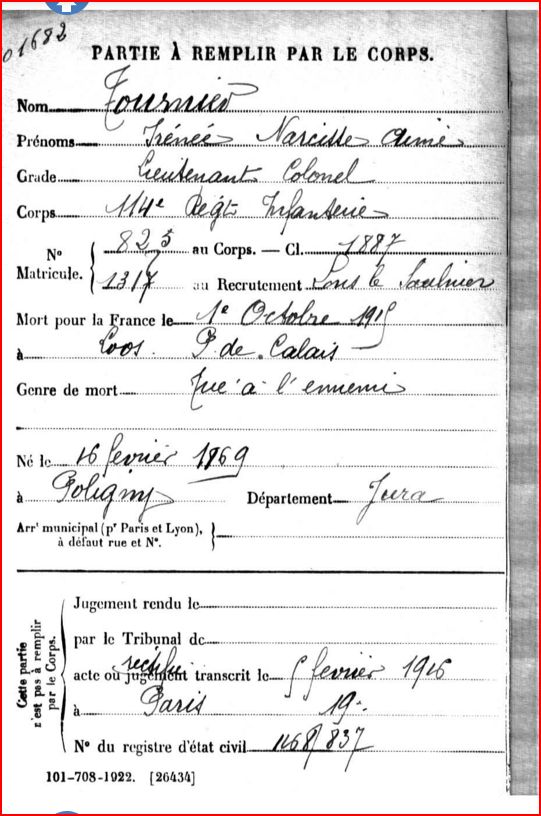 01682
PARTIE À REMPLIR PAR LE CORPS.
Nom Tournier
Prénoms Irénée Narcisse Aimé
Grade Lieutenant Colonel
Corps 114e Régt Infanterie
N° Matricule. { 825 au Corps. — Cl. 1887
1317 au Recrutement Lons le Saulnier
Mort pour la France le 1e Octobre 1915
à Loos. P. de. Calais
Genre de mort Tué à l'ennemi
Né le 16 février 1869
à Poligny Département Jura
Arrt municipal (pr Paris et Lyon),
à défaut rue et N°.
Cette partie n'est pas à remplir par le Corps.
Jugement rendu le
par le Tribunal de
acte ou jugement rectifié transcrit le 5 février 1916
à Paris 19e
N° du registre d'état civil 1168/837
101-708-1922. [26434]